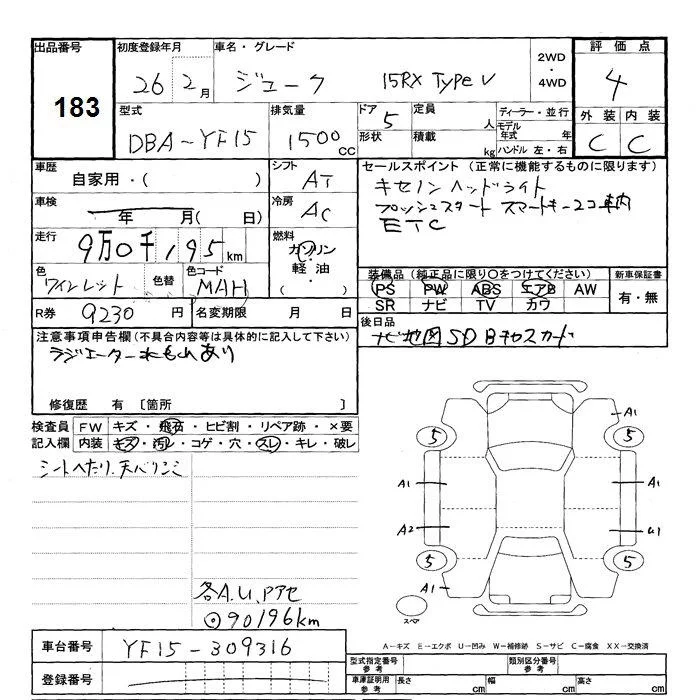 出品番号
183
初度登録年月
26 2月
車名・グレード
ジューク 15RX Type V
2WD
・
4WD
評価点
4
外装 内装
C C
型式
DBA-YF15
排気量
1500cc
ドア 5
形状
定員 人
積載 kg
ディーラー・並行
モデル年式 年
ハンドル 左・右
車歴
自家用・( )
シフト
AT
セールスポイント (正常に機能するものに限ります)
キセノンヘッドライト
プッシュスタート スマートキー2コ車内
ETC
車検
年 月( 日)
冷房
AC
走行
9万0千195km
燃料
ガソリン
・
軽油・
( )
色
ワインレット
色替
色コード
MAH
装備品 (純正品に限り〇をつけてください)
PS PW ABS エアB AW
SR ナビ TV カワ
新車保証書
有・無
R券 9230円
名変期限 月 日
後日品
ナビ地図SD Bキャスカード
注意事項申告欄(不具合内容等は具体的に記入して下さい)
ラジエーター水もれあり
修復歴 有 [箇所 ]
検査員 FW キズ・飛石・ヒビ割・リペア跡・×要
記入欄 内装 キズ・汚レ・コゲ・穴・スレ・キレ・破レ
シートへたり、天バリシミ
各A.U.Pアセ
⊙90196km
A1
5 5
A1 A1
A2 U1
5 5
A1
スペア
車台番号 YF15-309316
登録番号
A-キズ E-エクボ U-凹み W-補修跡 S-サビ C-腐食 XX-交換済
型式指定番号
参考
類別区分番号
参考
車庫証明用
参考
長さ cm 幅 cm 高さ cm